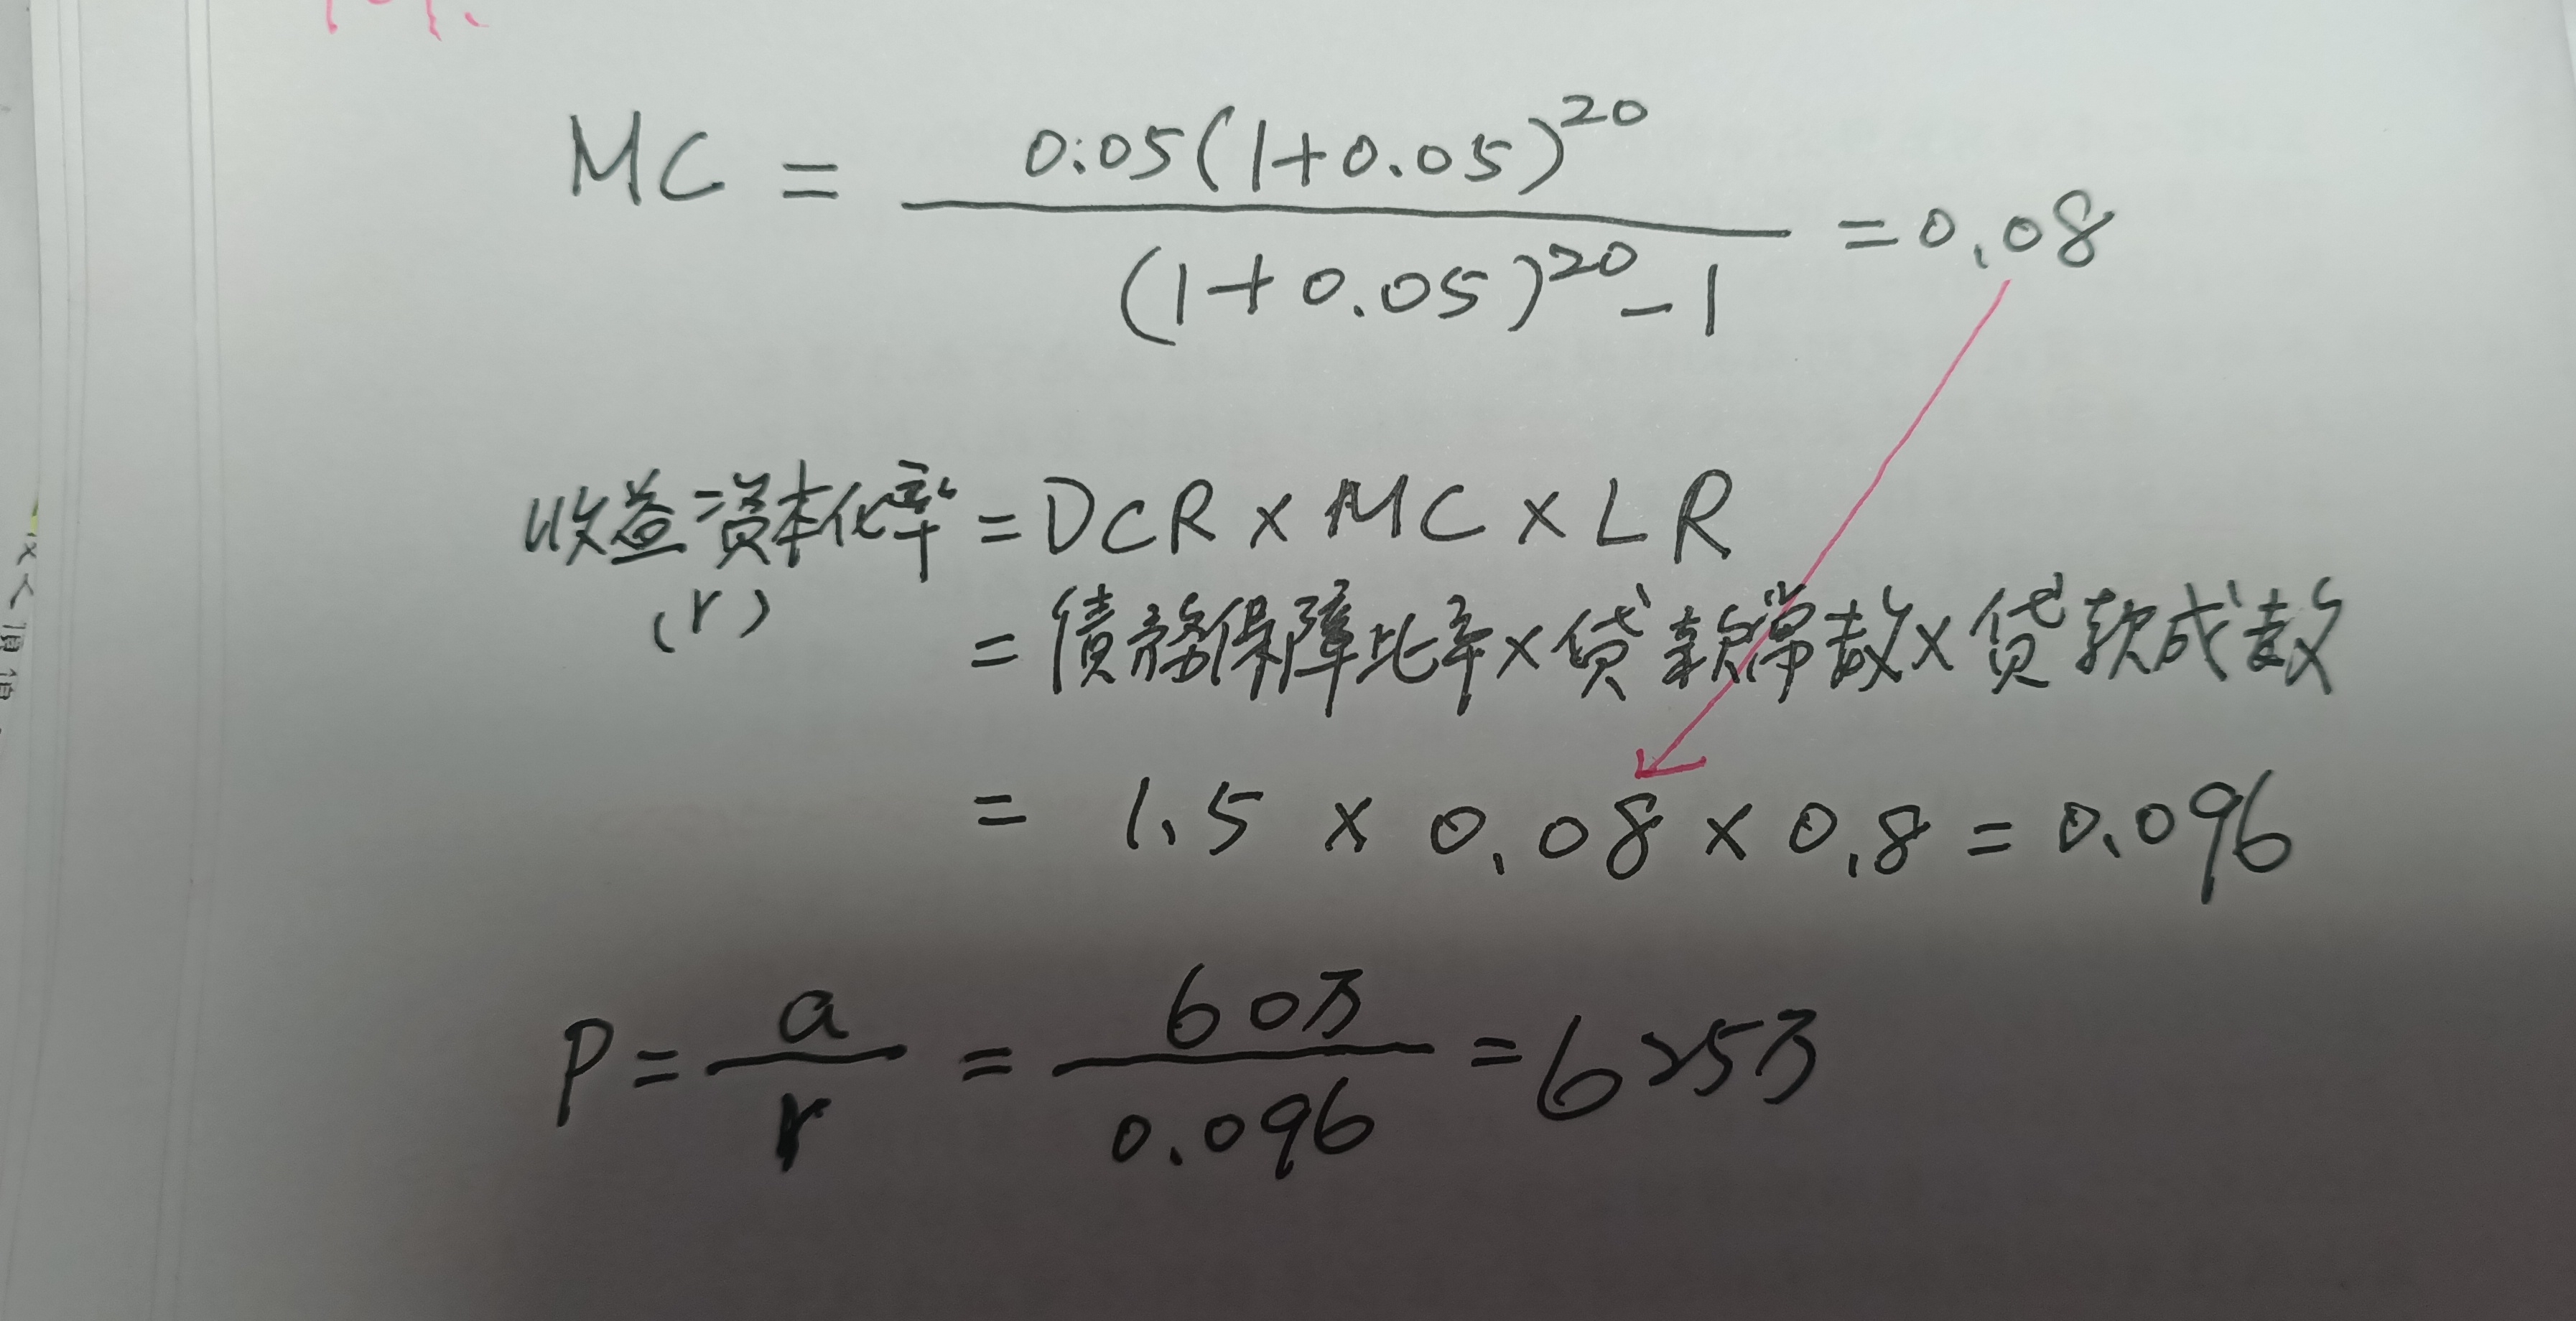 MC = 0.05(1+0.05)^20 / (1+0.05)^20 - 1 = 0.08
收益資本化率 = DCR × MC × LR
(r)
= 債務保障比率×貸款常數×貸款成數
= 1.5 × 0.08 × 0.8 = 0.096
P = a / r = 60万 / 0.096 = 625万